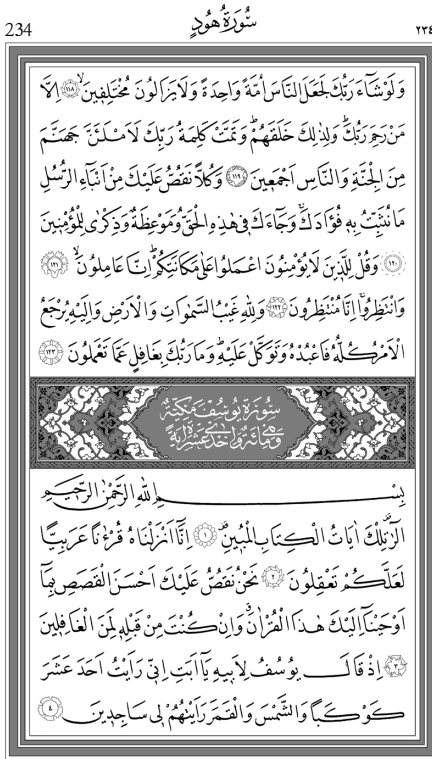 234 سُورَةُ هُودٍ ٢٣٤
وَلَوْ شَاءَ رَبُّكَ لَجَعَلَ النَّاسَ اُمَّةً وَاحِدَةً وَلَا يَزَالُونَ مُخْتَلِفٖينَۙ ﴿١١٨﴾ اِلَّا
مَنْ رَحِمَ رَبُّكَۜ وَلِذٰلِكَ خَلَقَهُمْۜ وَتَمَّتْ كَلِمَةُ رَبِّكَ لَاَمْلَـَٔنَّ جَهَنَّمَ
مِنَ الْجِنَّةِ وَالنَّاسِ اَجْمَعٖينَ ﴿١١٩﴾ وَكُلًّا نَقُصُّ عَلَيْكَ مِنْ اَنْبَاءِ الرُّسُلِ
مَا نُثَبِّتُ بِهٖ فُؤٰادَكَۚ وَجَاءَكَ فٖي هٰذِهِ الْحَقُّ وَمَوْعِظَةٌ وَذِكْرٰى لِلْمُؤْمِنٖينَ
﴿١٢٠﴾ وَقُلْ لِلَّذٖينَ لَا يُؤْمِنُونَ اعْمَلُوا عَلٰى مَكَانَتِكُمْۜ اِنَّا عَامِلُونَۙ ﴿١٢١﴾
وَانْتَظِرُواۚ اِنَّا مُنْتَظِرُونَ ﴿١٢٢﴾ وَلِلّٰهِ غَيْبُ السَّمٰوَاتِ وَالْاَرْضِ وَاِلَيْهِ يُرْجَعُ
الْاَمْرُ كُلُّهُ فَاعْبُدْهُ وَتَوَكَّلْ عَلَيْهِۜ وَمَا رَبُّكَ بِغَافِلٍ عَمَّا تَعْمَلُونَ ﴿١٢٣﴾
سُورَةُ يُوسُفَ مَكِّيَّةٌ
وَهِيَ مِائَةٌ وَاِحْدٰى عَشْرَةَ اٰيَةً
بِسْمِ اللّٰهِ الرَّحْمٰنِ الرَّحٖيمِ
الٓرٰ۠ تِلْكَ اٰيَاتُ الْكِتَابِ الْمُبٖينِ۠ ﴿١﴾ اِنَّا اَنْزَلْنَاهُ قُرْءٰنًا عَرَبِيًّا
لَعَلَّكُمْ تَعْقِلُونَ ﴿٢﴾ نَحْنُ نَقُصُّ عَلَيْكَ اَحْسَنَ الْقَصَصِ بِمَا
اَوْحَيْنَا اِلَيْكَ هٰذَا الْقُرْاٰنَۗ وَاِنْ كُنْتَ مِنْ قَبْلِهٖ لَمِنَ الْغَافِلٖينَ
﴿٣﴾ اِذْ قَالَ يُوسُفُ لِاَبٖيهِ يَا اَبَتِ اِنّٖي رَاَيْتُ اَحَدَ عَشَرَ
كَوْكَبًا وَالشَّمْسَ وَالْقَمَرَ رَاَيْتُهُمْ لٖي سَاجِدٖينَ ﴿٤﴾